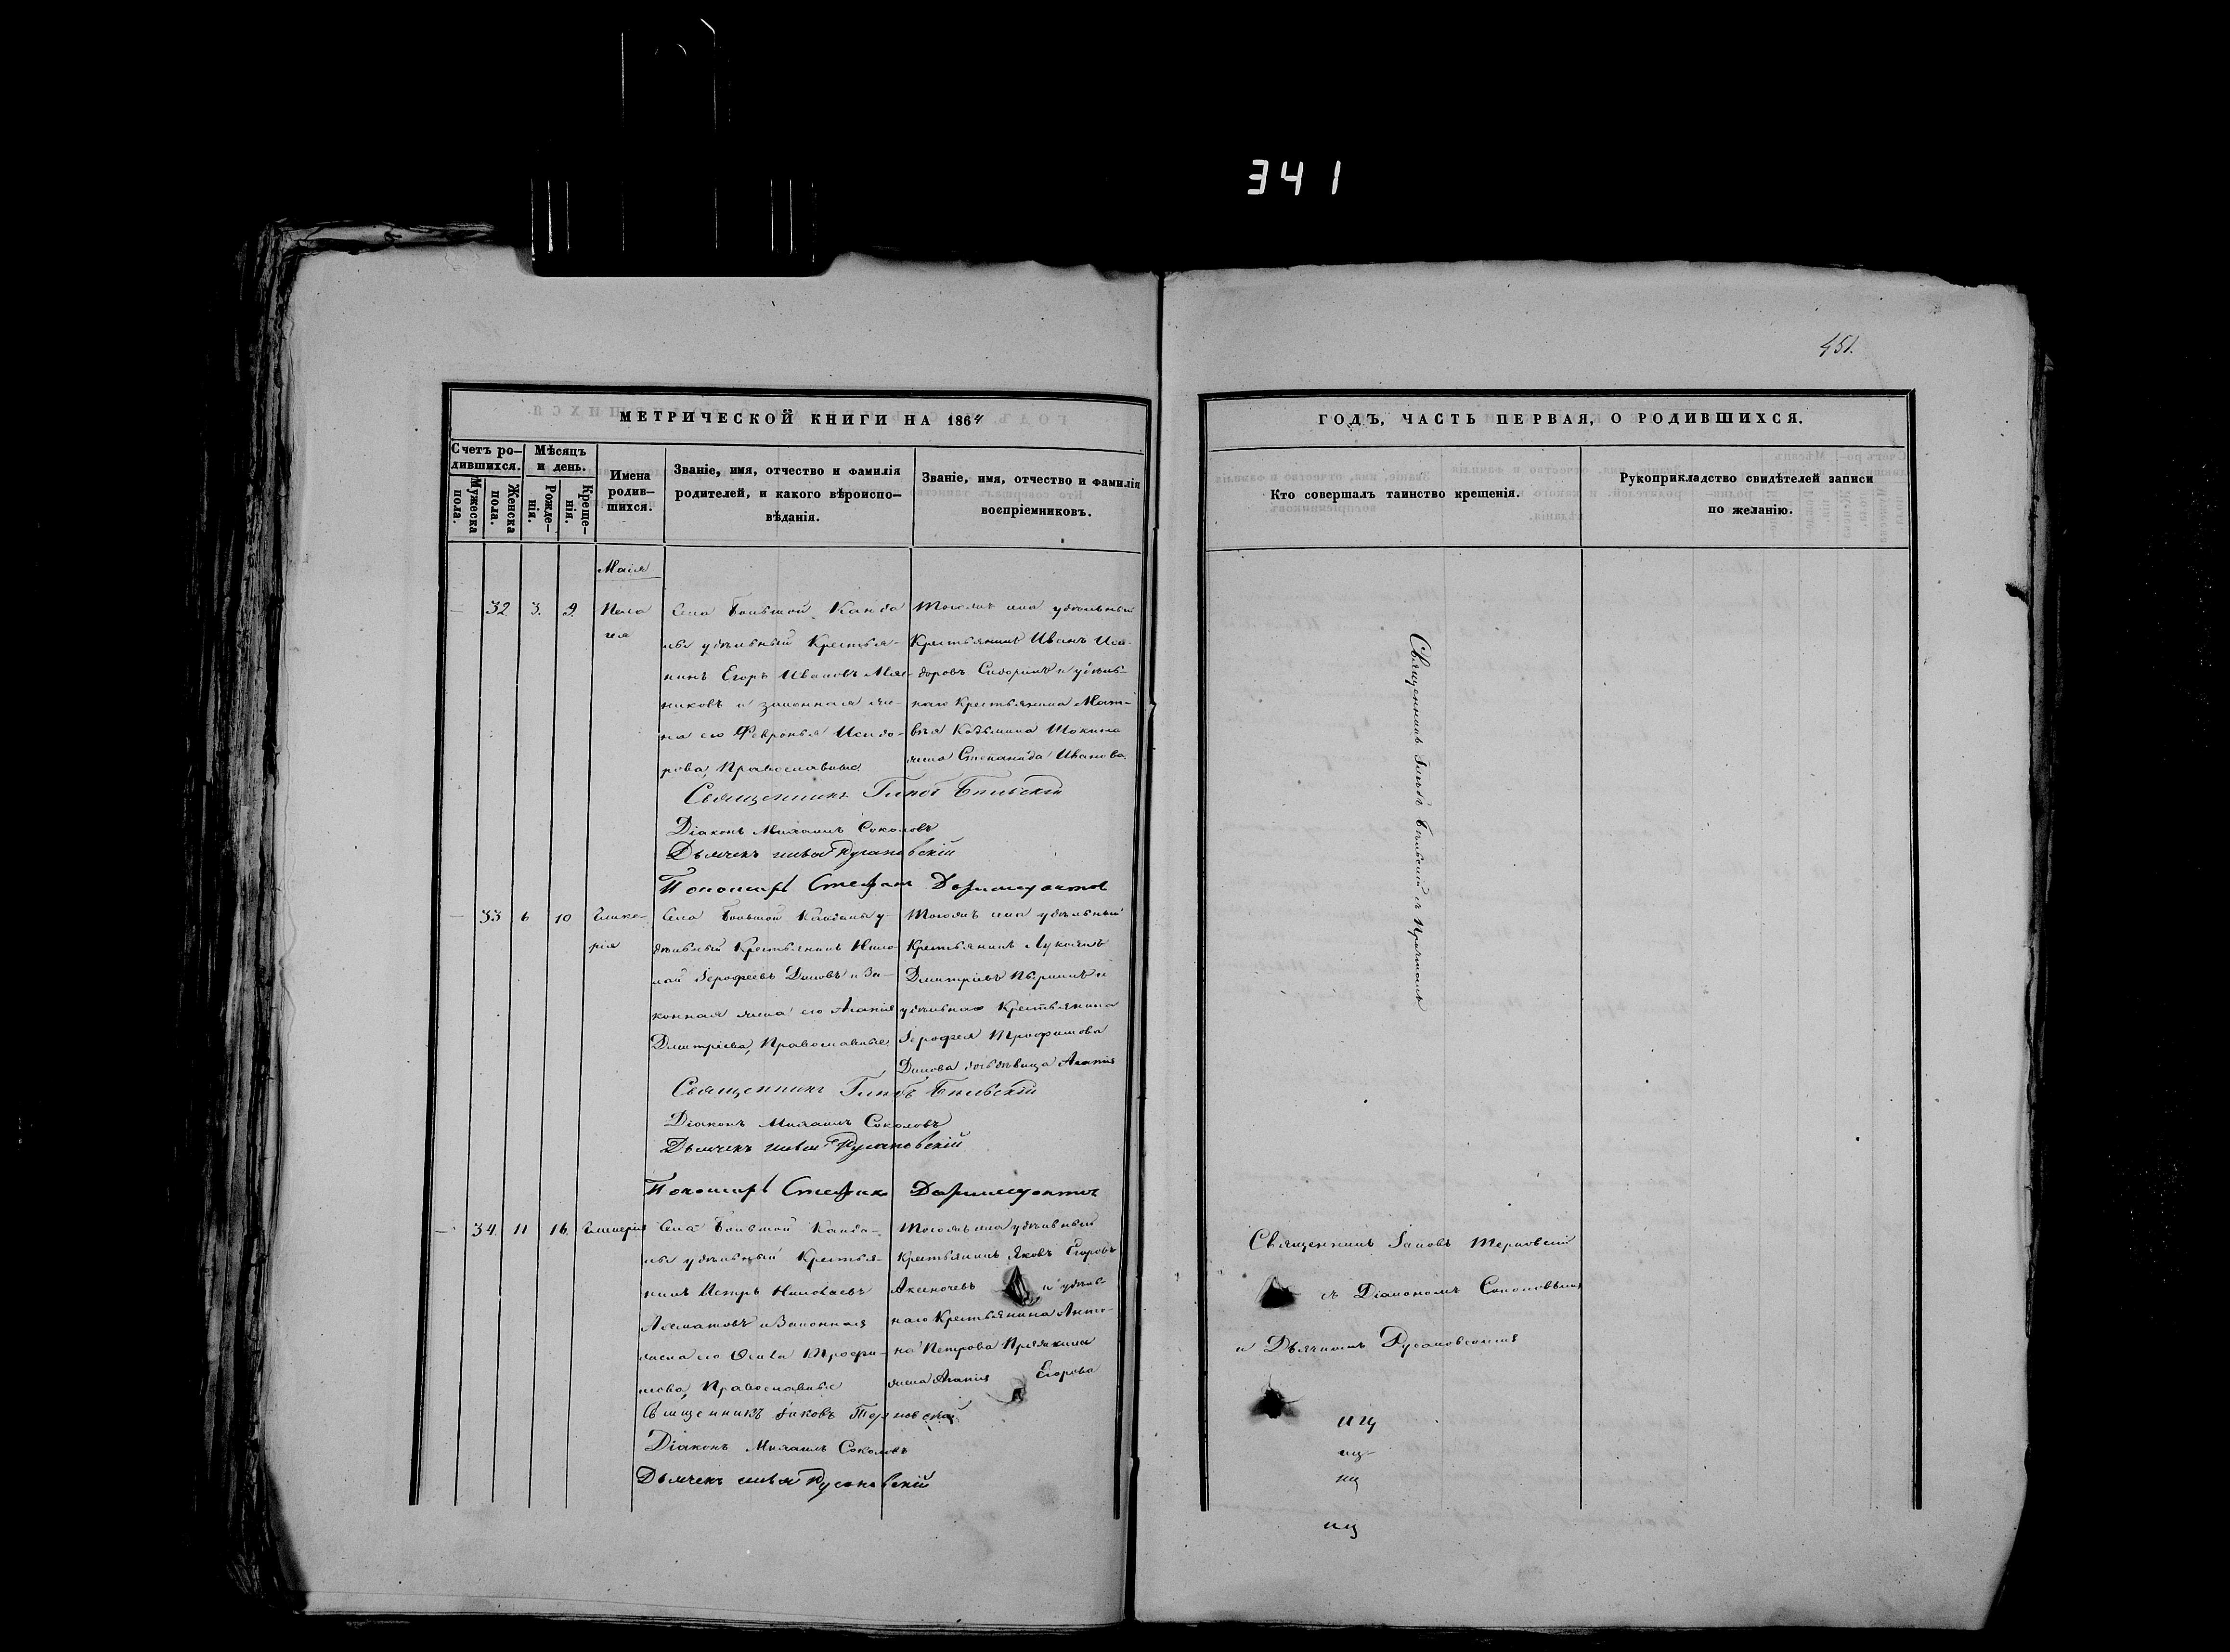 341
451.
МЕТРИЧЕСКОЙ КНИГИ НА 1864
ГОДЪ, ЧАСТЬ ПЕРВАЯ, О РОДИВШИХСЯ.
Счетъ ро-
дившихся.
Мужеска
пола.
Женска
пола.
Мѣсяцъ
и день.
Рожде-
нія.
Креще-
нія.
Имена
родив-
шихся.
Званіе, имя, отчество и фамилія
родителей, и какого вѣроиспо-
вѣданія.
Званіе, имя, отчество и фамилія
воспріемниковъ.
Кто совершалъ таинство крещенія.
Рукоприкладство свидѣтелей записи
по желанію.
Маія
32 3. 9.
Пела
гея
Села Большой Канда
лы удѣльный Крестья-
нинъ Егоръ Ивановъ Мяс-
никовъ и законная же-
на его Февронья Исидо-
рова, Православные.
Тогожъ села удѣльный
Крестьянинъ Иванъ Иси-
доровъ Сидоринъ и удѣль-
наго Крестьянина Мат-
вѣя Козьмина Шокина
жена Степанида Иванова.
Священникъ Глѣбъ Бѣльскій
Діаконъ Михаилъ Соколовъ
Дьячекъ Русановскій
Пономарь Стефанъ
Священникъ Глѣбъ Бѣльскій съ Причтомъ
33 6 10
Глике-
рія
Села Большой Кандалы у-
дѣльный Крестьянинъ Нико-
лай Іерофеевъ Диковъ и За-
конная жена его Агапія
Дмитріева, Православные.
Тогожъ села удѣльный
Крестьянинъ Лукіянъ
Дмитріевъ и
удѣльнаго Крестьянина
Іерофея Трофимова
Дикова дочь дѣвица Агапія
Священникъ Глѣбъ Бѣльскій
Діаконъ Михаилъ Соколовъ
Дьячекъ Русановскій
Пономарь Стефанъ
34. 11 16.
Гликерія
Села Большой Канда-
лы удѣльный Крестья-
нинъ Петръ Николаевъ
и Законная
жена его Трофи-
мова, Православные
Тогожъ села удѣльный
Крестьянинъ Яковъ Егоровъ
и удѣль-
наго Крестьянина Анто-
на Петрова
жена Агапія Егорова
Священникъ Іаковъ Терновскій
Діаконъ Михаилъ Соколовъ
Дьячекъ Русановскій
Священникъ Іаковъ Терновскій
съ Діакономъ Соколовымъ
и Дьячкомъ Русановскимъ